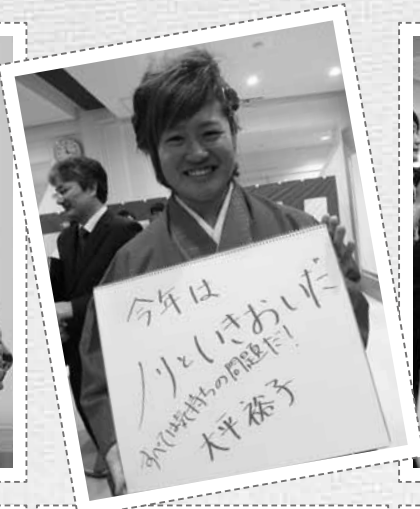 今年は
ノリといきおいだ
すべては気持ちの問題だ!
大平裕子